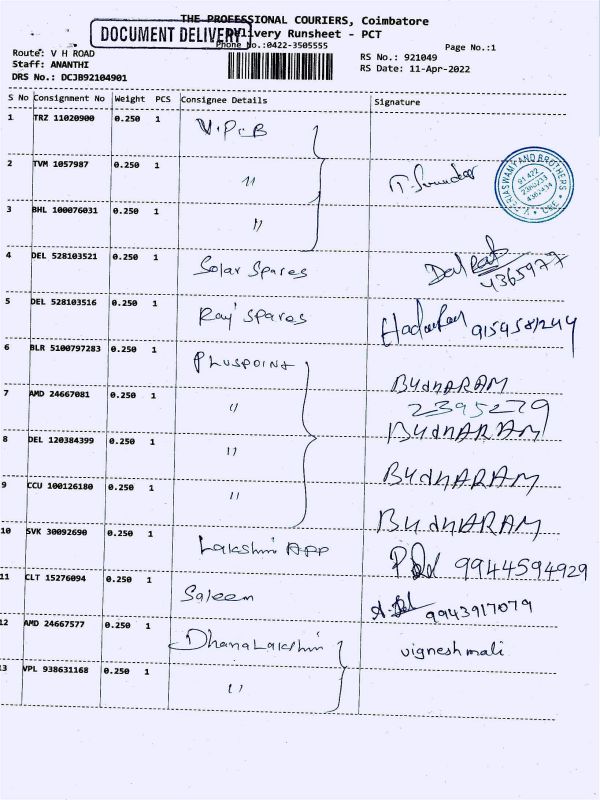 THE PROFESSIONAL COURIERS, Coimbatore
DOCUMENT DELIVERY
Delivery Runsheet - PCT
Phone No.:0422-3505555
Page No.:1
Route: V H ROAD
RS No.: 921049
Staff: ANANTHI
RS Date: 11-Apr-2022
DRS No.: DCJB92104901
S No Consignment No Weight PCS Consignee Details Signature
1 TRZ 11020900 0.250 1 V.P.B
2 TVM 1057987 0.250 1 " T. Sunder
3 BHL 100076031 0.250 1 "
4 DEL 528103521 0.250 1 Solar Spares 4365977
5 DEL 528103516 0.250 1 Raj Spares 9159581244
6 BLR 5100797283 0.250 1 PLUSPOINT BUDHARAM
2395279
7 AMD 24667081 0.250 1 " BUDHARAM
8 DEL 120384399 0.250 1 " BUDHARAM
9 CCU 100126180 0.250 1 " BUDHARAM
10 SVK 30092690 0.250 1 Lakshmi App 9944594929
11 CLT 15276094 0.250 1 Saleem 9943917079
12 AMD 24667577 0.250 1 Dhana Lakshmi vignesh mali
13 VPL 938631168 0.250 1 "